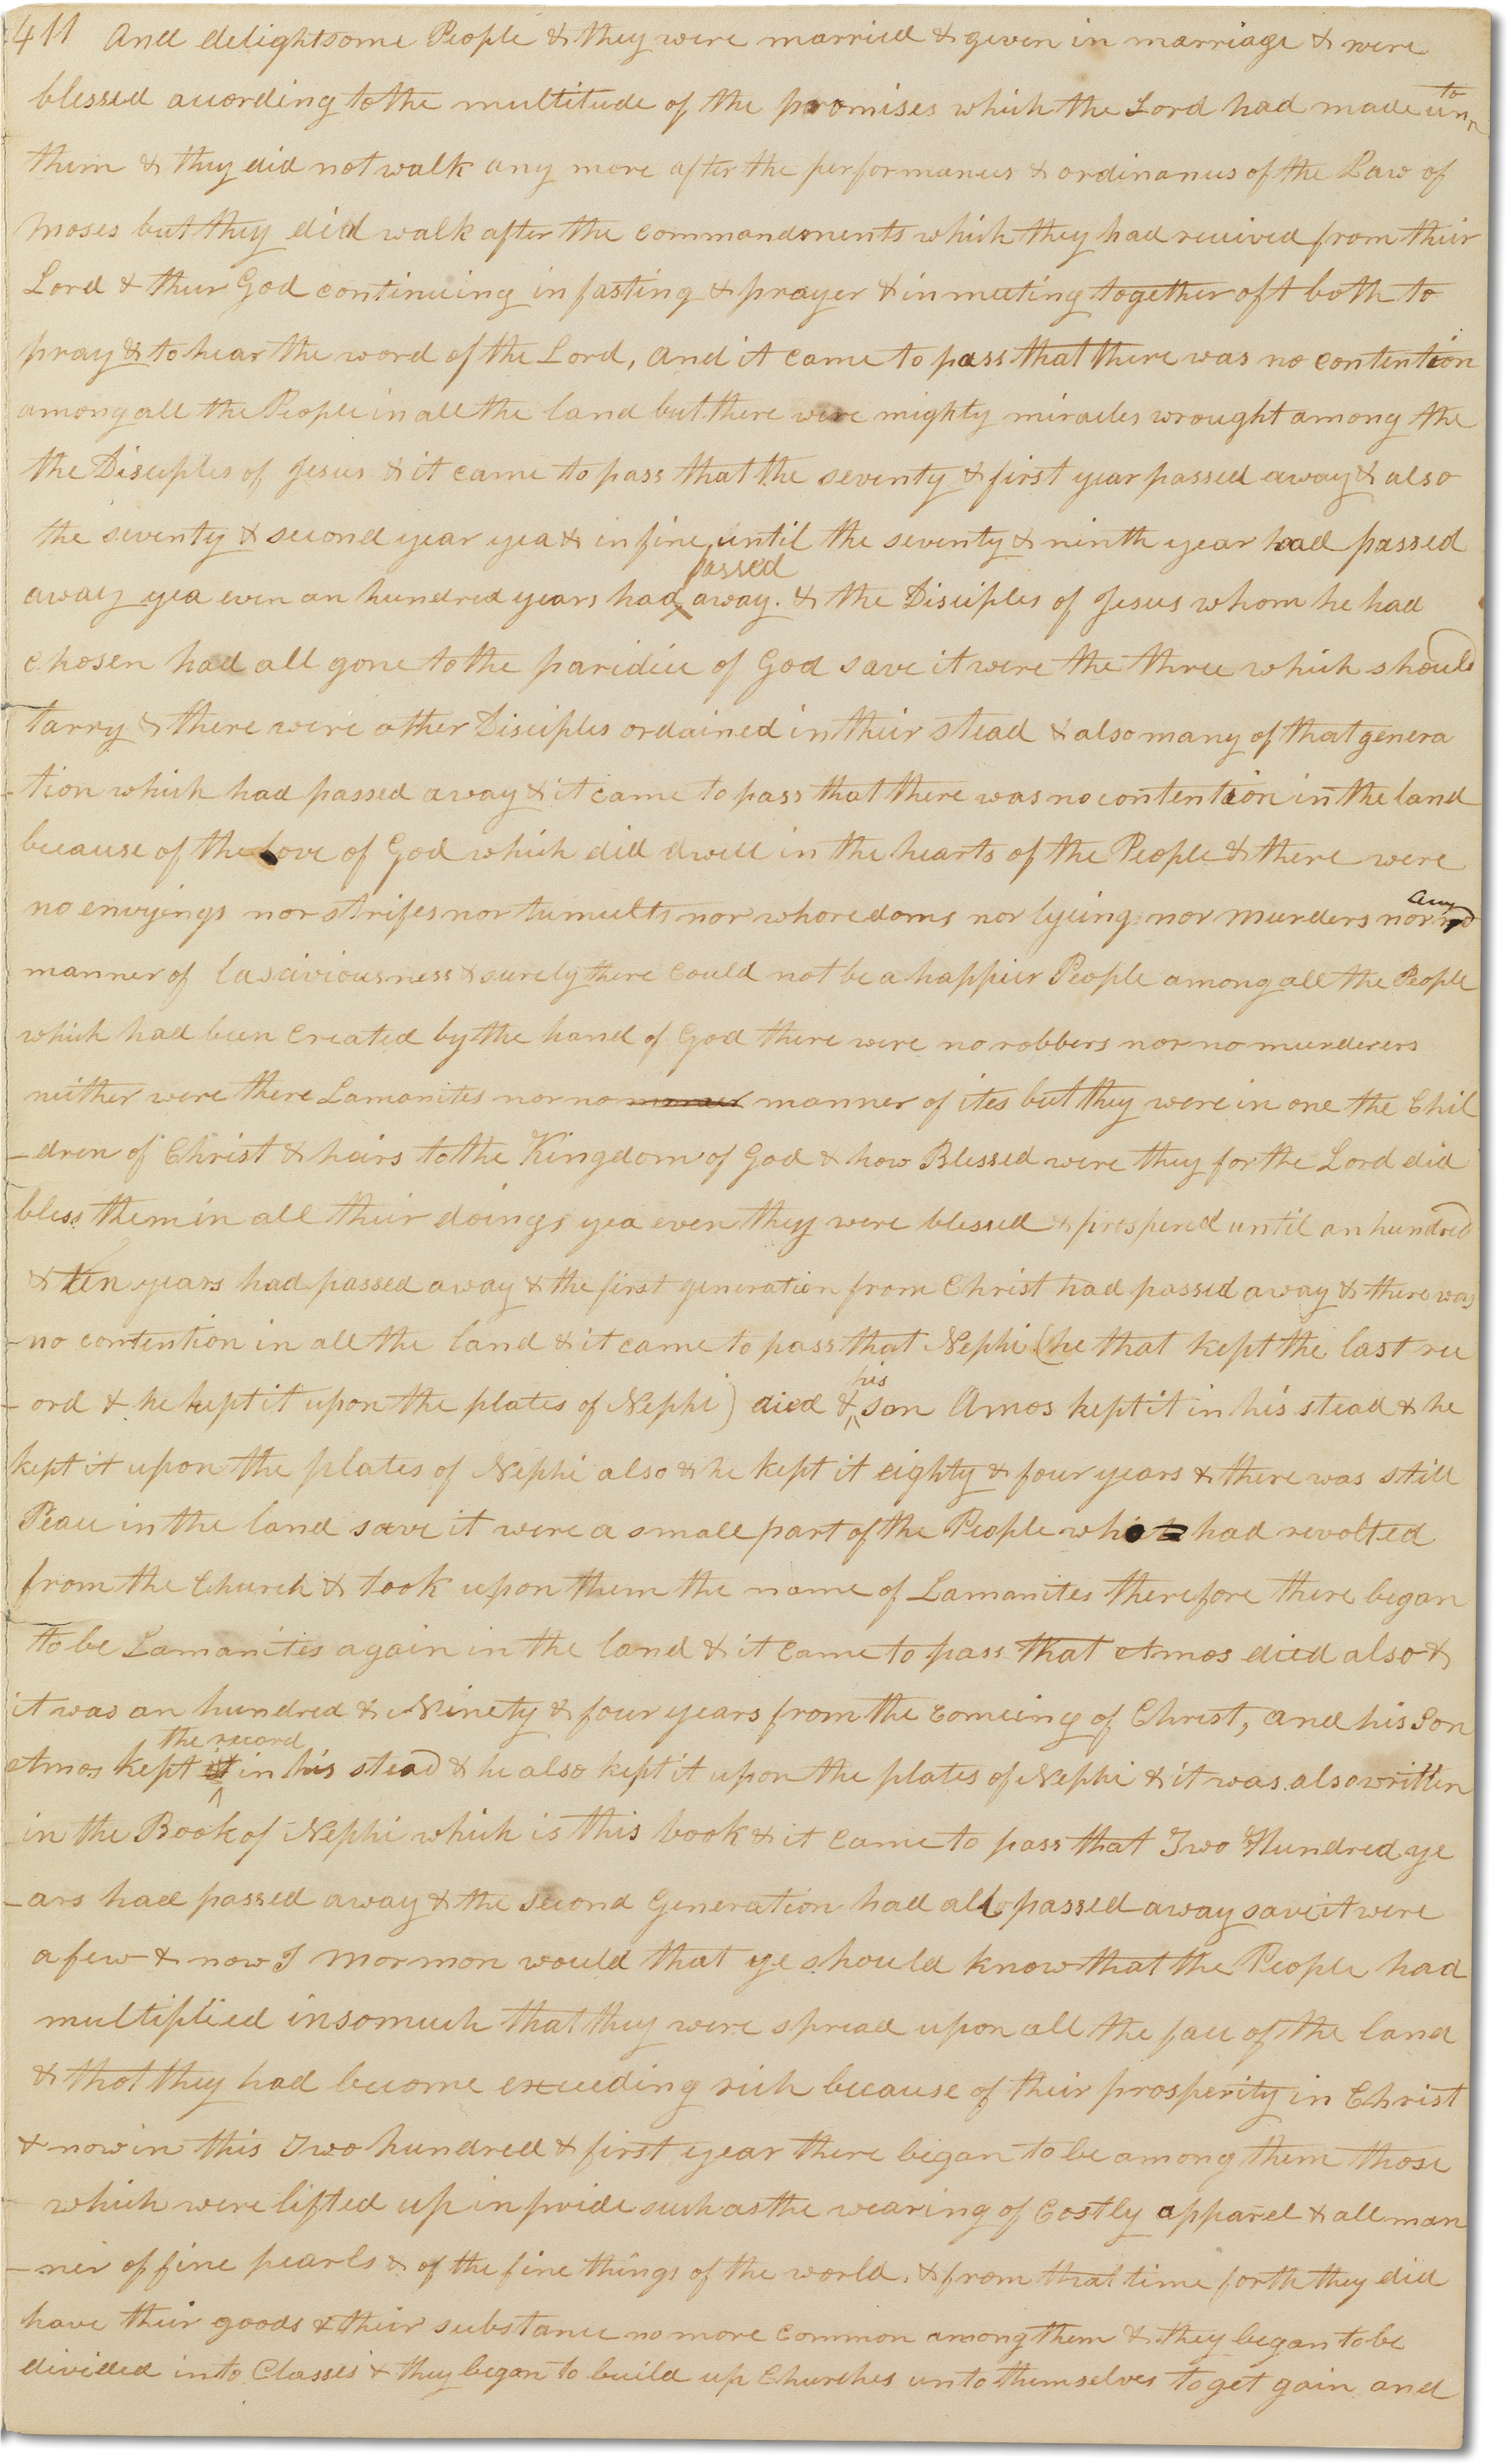 411 And delightsome People & they were married & given in marriage & were
blessed according to the multitude of the promises which the Lord had made unto
them & they did not walk any more after the performances & ordinances of the Law of
Moses but they did walk after the commandments which they had received from their
Lord & their God continueing in fasting & prayer & in meeting together oft both to
pray & to hear the word of the Lord, And it came to pass that there was no contention
among all the People in all the land but there were mighty miracles wrought among the
the Disciples of Jesus & it came to pass that the seventy & first year passed away & also
the seventy & second year yea & in fine until the seventy & ninth year had passed
away yea even an hundred years had passed away. & the Disciples of Jesus whom he had
chosen had all gone to the paridice of God save it were the three which should
tarry & there were other Disciples ordained in their stead & also many of that genera
-tion which had passed away & it came to pass that there was no contention in the land
because of the love of God which did dwell in the hearts of the People & there were
no envyings nor strifes nor tumults nor whoredoms nor lyeing nor murders nor no any
manner of lasciviousness & surely there could not be a happier People among all the People
which had been created by the hand of God there were no robbers nor no murderers
neither were there Lamanites nor no manner of ites but they were in one the Chil
-dren of Christ & heirs to the Kingdom of God & how Blessed were they for the Lord did
bless them in all their doings yea even they were blessed & prospered until an hundred
& ten years had passed away & the first generation from Christ had passed away & there was
-no contention in all the land & it came to pass that Nephi (he that kept the last rec
-ord & he kept it upon the plates of Nephi) died & his son Amos kept it in his stead & he
kept it upon the plates of Nephi also & he kept it eighty & four years & there was still
Peace in the land save it were a small part of the People who had revolted
from the Church & took upon them the name of Lamanites therefore there began
to be Lamanites again in the land & it came to pass that Amos died also &
it was an hundred & Ninety & four years from the comeing of Christ, and his Son
Amos kept it the record in his stead & he also kept it upon the plates of Nephi & it was also written
in the Book of Nephi which is this book & it came to pass that Two Hundred ye
-ars had passed away & the second Generation had all passed away save it were
a few & now I Mormon would that ye should know that the People had
multiplied insomuch that they were spread upon all the face of the land
& that they had become exceeding rich because of their prosperity in Christ
& now in this Two hundred & first year there began to be among them those
which were lifted up in pride such as the wearing of Costly apparel & all man
-ner of fine pearls & of the fine things of the world. & from that time forth they did
have their goods & their substance no more common among them & they began to be
divided into Classes & they began to build up Churches unto themselves to get gain and